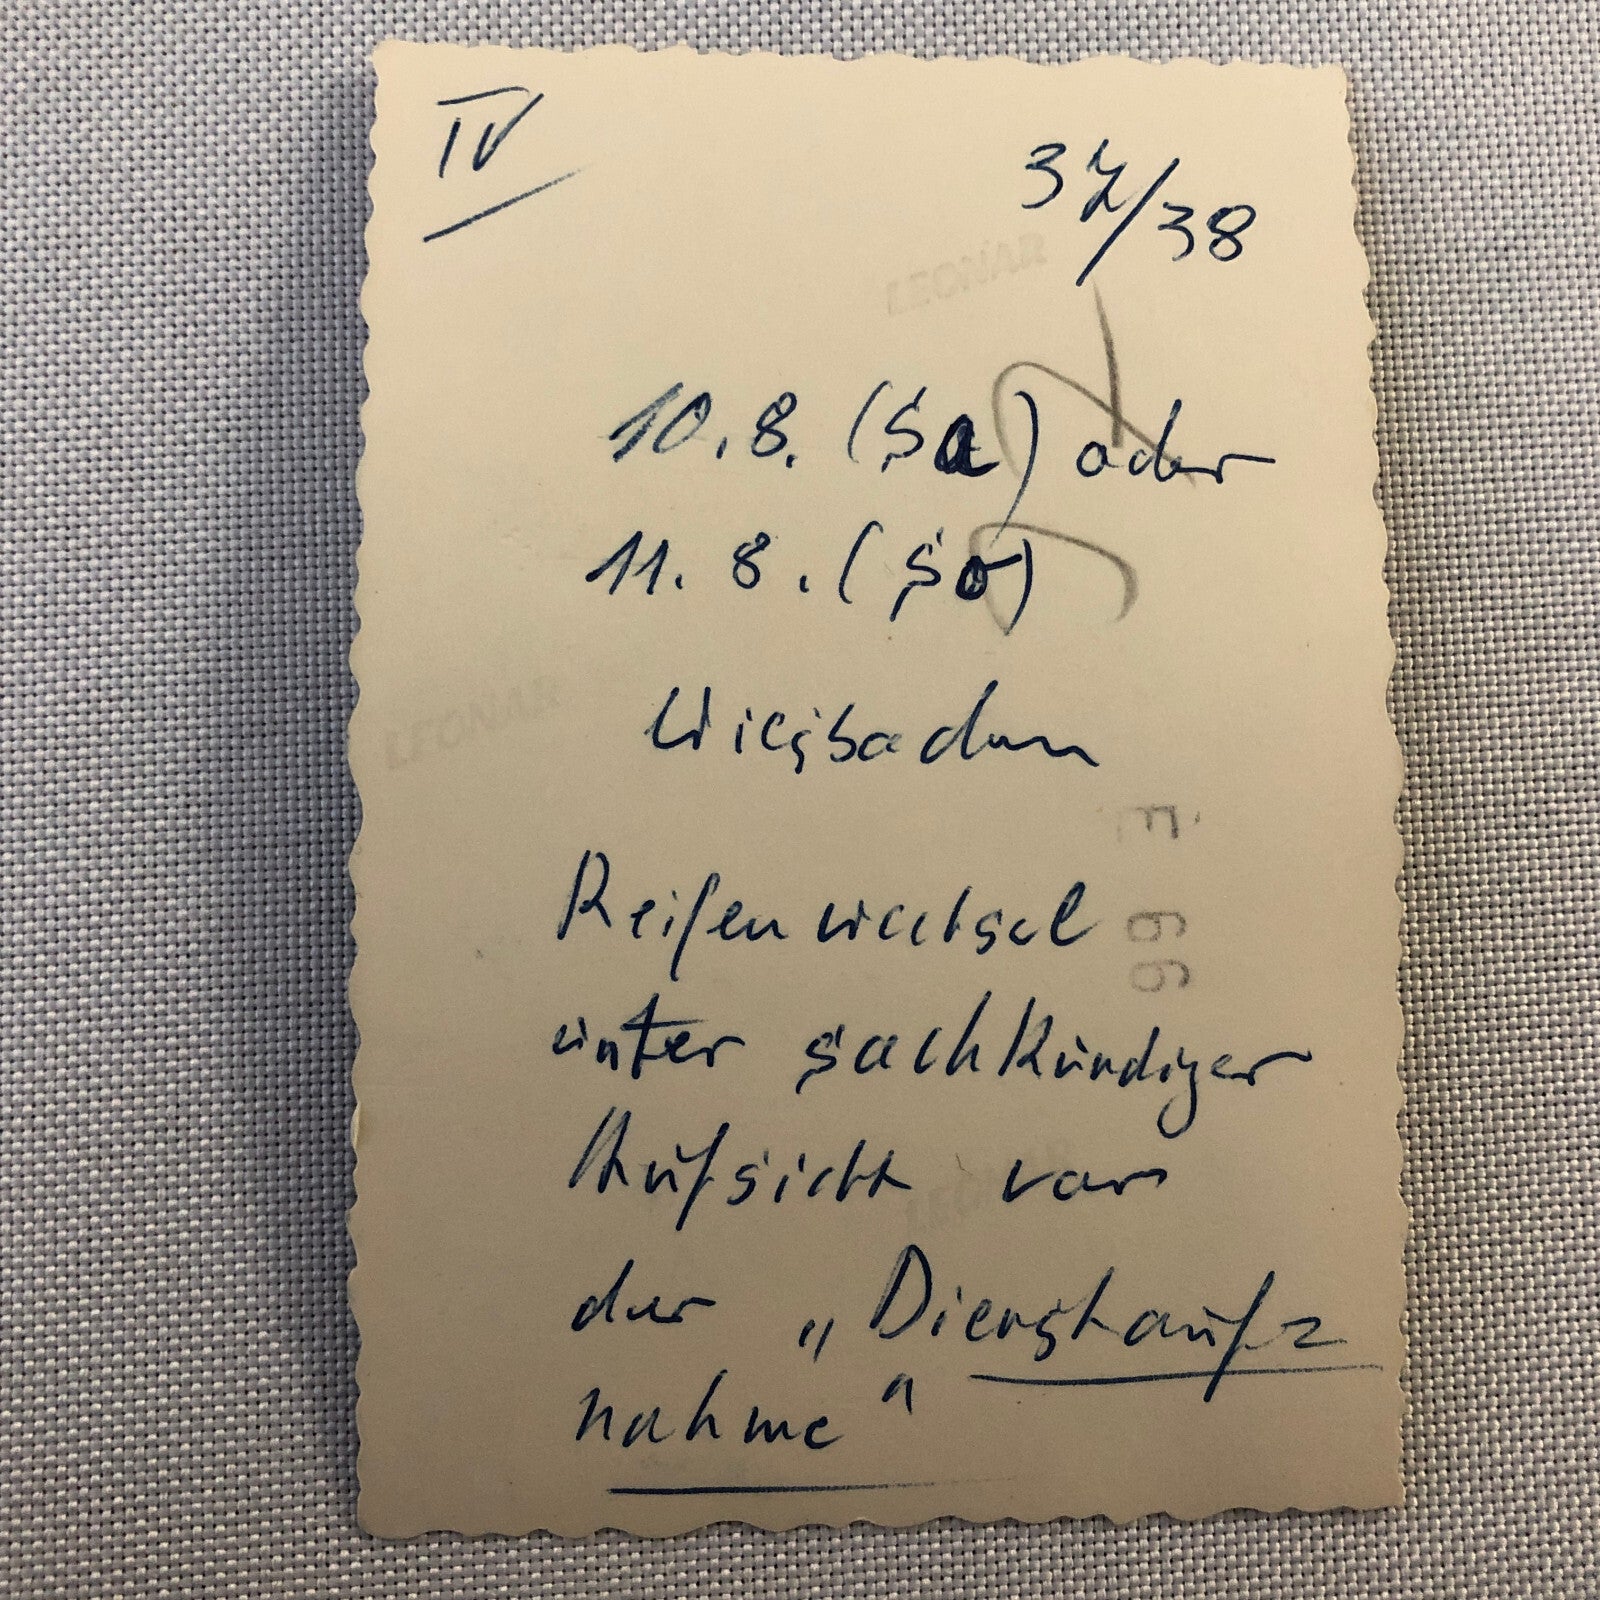 IV
37/38
LEONAR
10.8. (Sa) oder
11.8. (So)
Wiesbaden
LEONAR
Reifenwechsel
unter sachkundiger
Aufsicht vor
LEONAR
der „Dienstauf=
nahme"
E 66